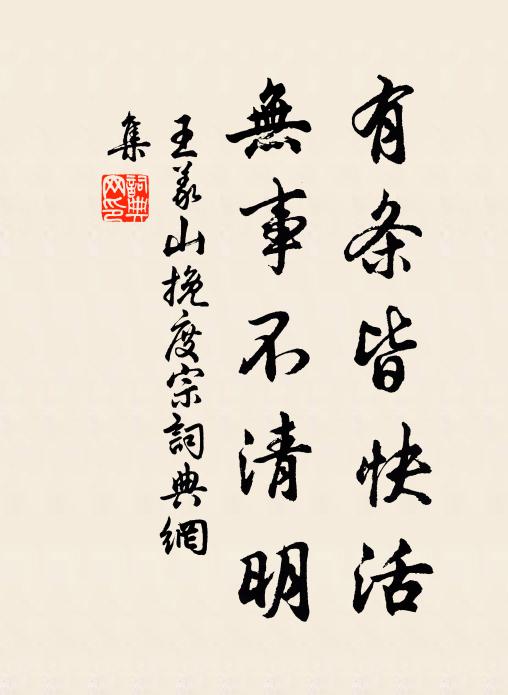 有条皆快活
無事不清明
王義山挽度宗詞典網
集
詞典网印